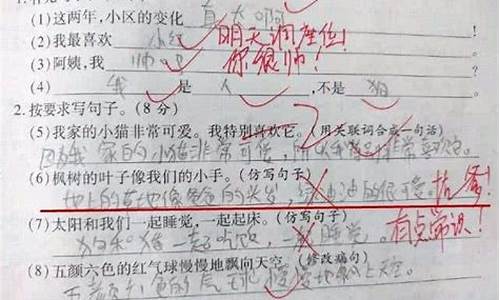 (1)这两年,小区的变化 真大啊
(2)我最喜欢 小红 明天调座位!
(3)阿姨,我 帅吗 你很帅!
(4) 我 是 人 ,不是 狗
2. 按要求写句子。(8 分)
(5)我家的小猫非常可爱。我特别喜欢它。(用关联词合成一句话)
因为我家的小猫非常可爱,所以我非常喜欢它。
(6)枫树的叶子像我们的小手。(仿写句子)
地上的草地像爸爸的头发,绿油油的很可爱。
(7)太阳和我们一起睡觉,一起起床。(仿写句子)
狗和猪一起吃饭,一起睡觉。 有点常识!
(8)五颜六色的红气球慢慢地飘向天空。(修改病句)
五颜六色的气球慢慢地飘上天空。